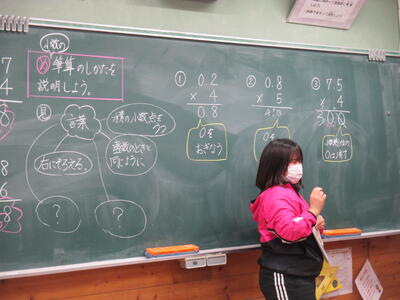 小数の
め 筆算のしかたを
説明しよう。
見
言葉
積の小数点を
うつ
右にそろえる。
整数のときと
同じように
?
?
① 0.2
× 4
0.8
0を
おぎなう
② 0.8
× 5
4.0
0を
③ 7.5
× 4
30.0
7
4
8
6
8